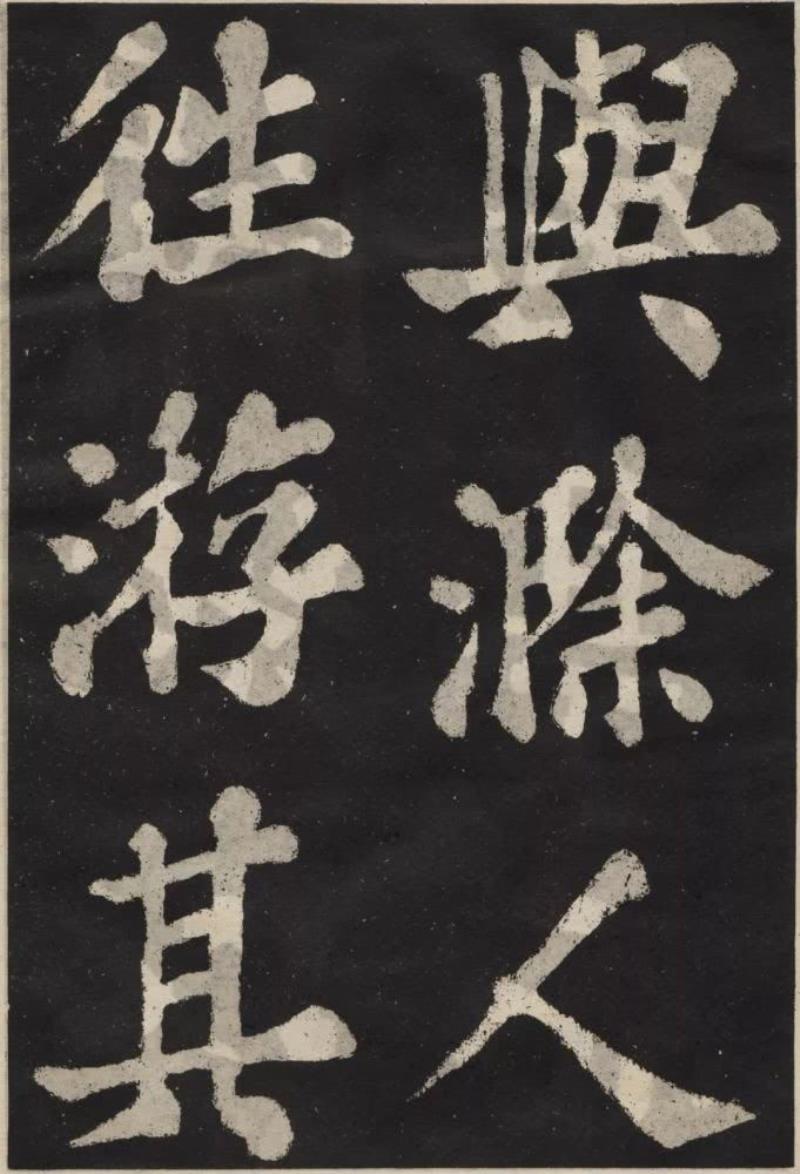 與滁人
往游其